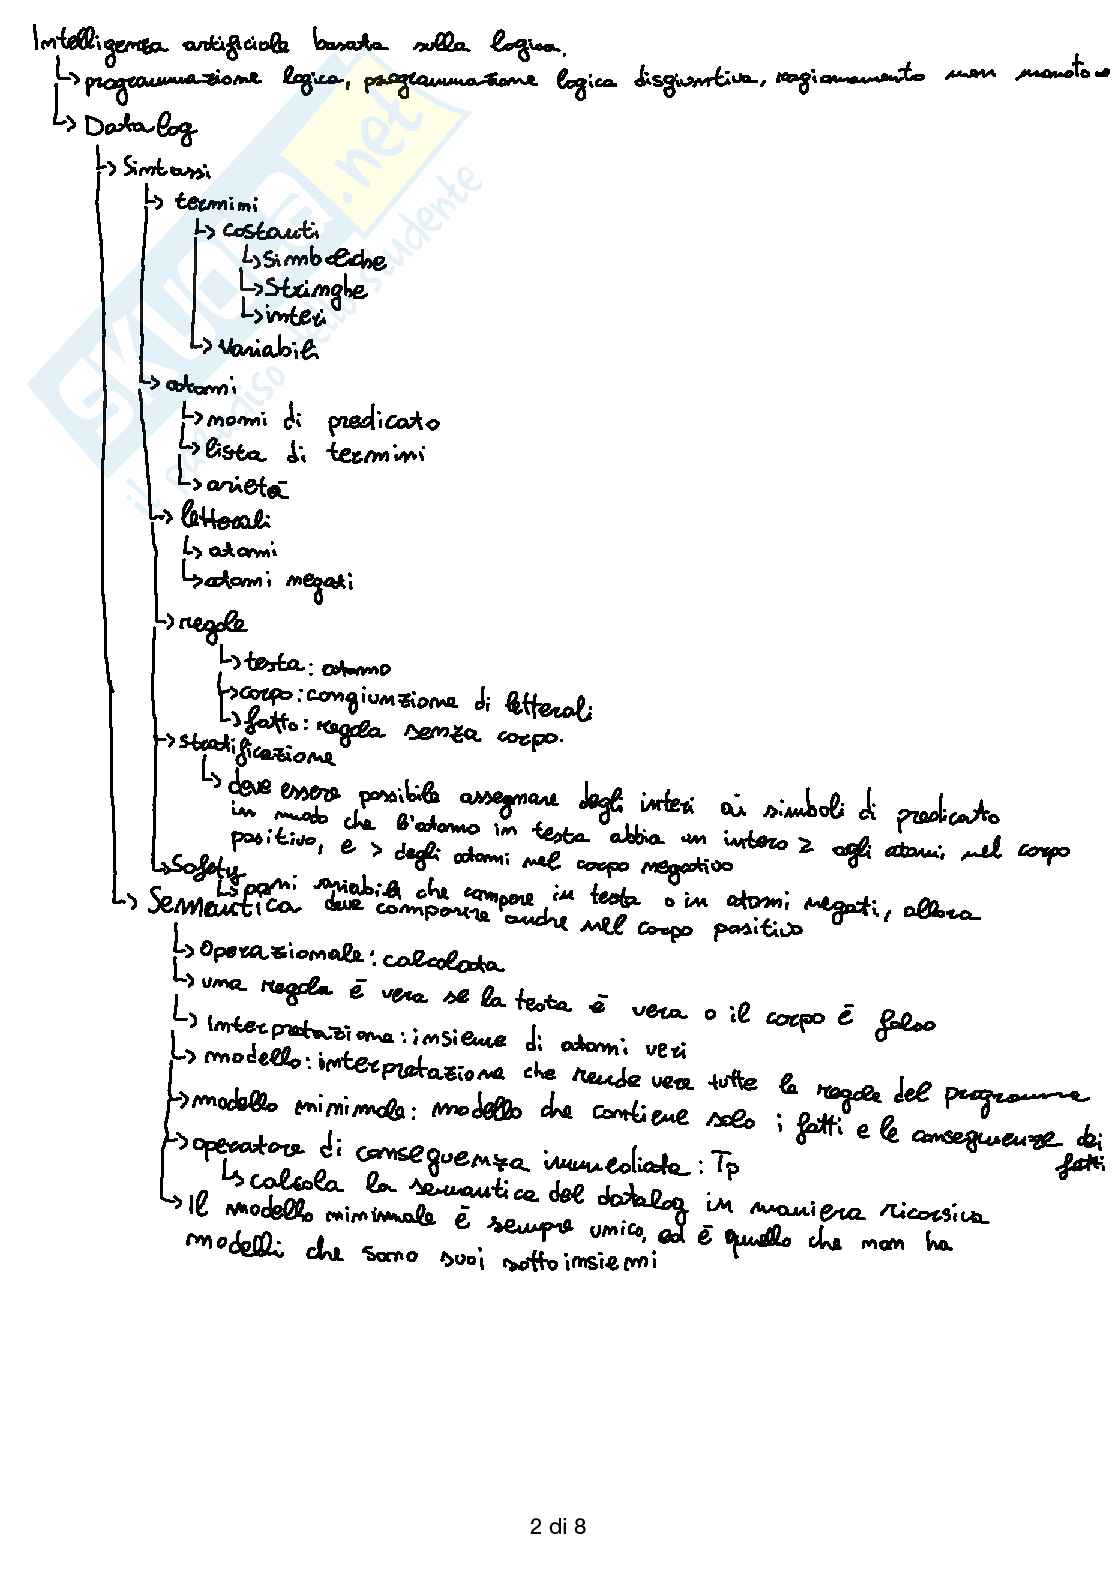 Intelligenza artificiale basata sulla logica.
↳ programmazione logica, programmazione logica disgiuntiva, ragionamento non monotono
↳ Datalog
↳ Sintassi
↳ termini
↳ costanti
↳ Simboliche
↳ Stringhe
↳ interi
↳ Variabili
↳ atomi
↳ nomi di predicato
↳ lista di termini
↳ arietà
↳ letterali
↳ atomi
↳ atomi negati
↳ regole
↳ testa: atomo
↳ corpo: congiunzione di letterali
↳ fatto: regola senza corpo.
↳ stratificazione
↳ deve essere possibile assegnare degli interi ai simboli di predicato
in modo che l'atomo in testa abbia un intero ≥ agli atomi nel corpo
positivo, e > degli atomi nel corpo negativo
↳ Safety
↳ variabile che compare in testa o in atomi negati, allora
deve comparire anche nel corpo positivo
↳ Semantica
↳ Operazionale: calcolata
↳ una regola è vera se la testa è vera o il corpo è falso
↳ Interpretazione: insieme di atomi veri
↳ modello: interpretazione che rende vere tutte le regole del programma
↳ modello minimale: modello che contiene solo i fatti e le conseguenze dei
fatti
↳ operatore di conseguenza immediata: Tp
↳ calcola la semantica del datalog in maniera ricorsiva
↳ Il modello minimale è sempre unico, ed è quello che non ha
modelli che sono suoi sottoinsiemi
skuola.net
il paradiso dello studente
2 di 8